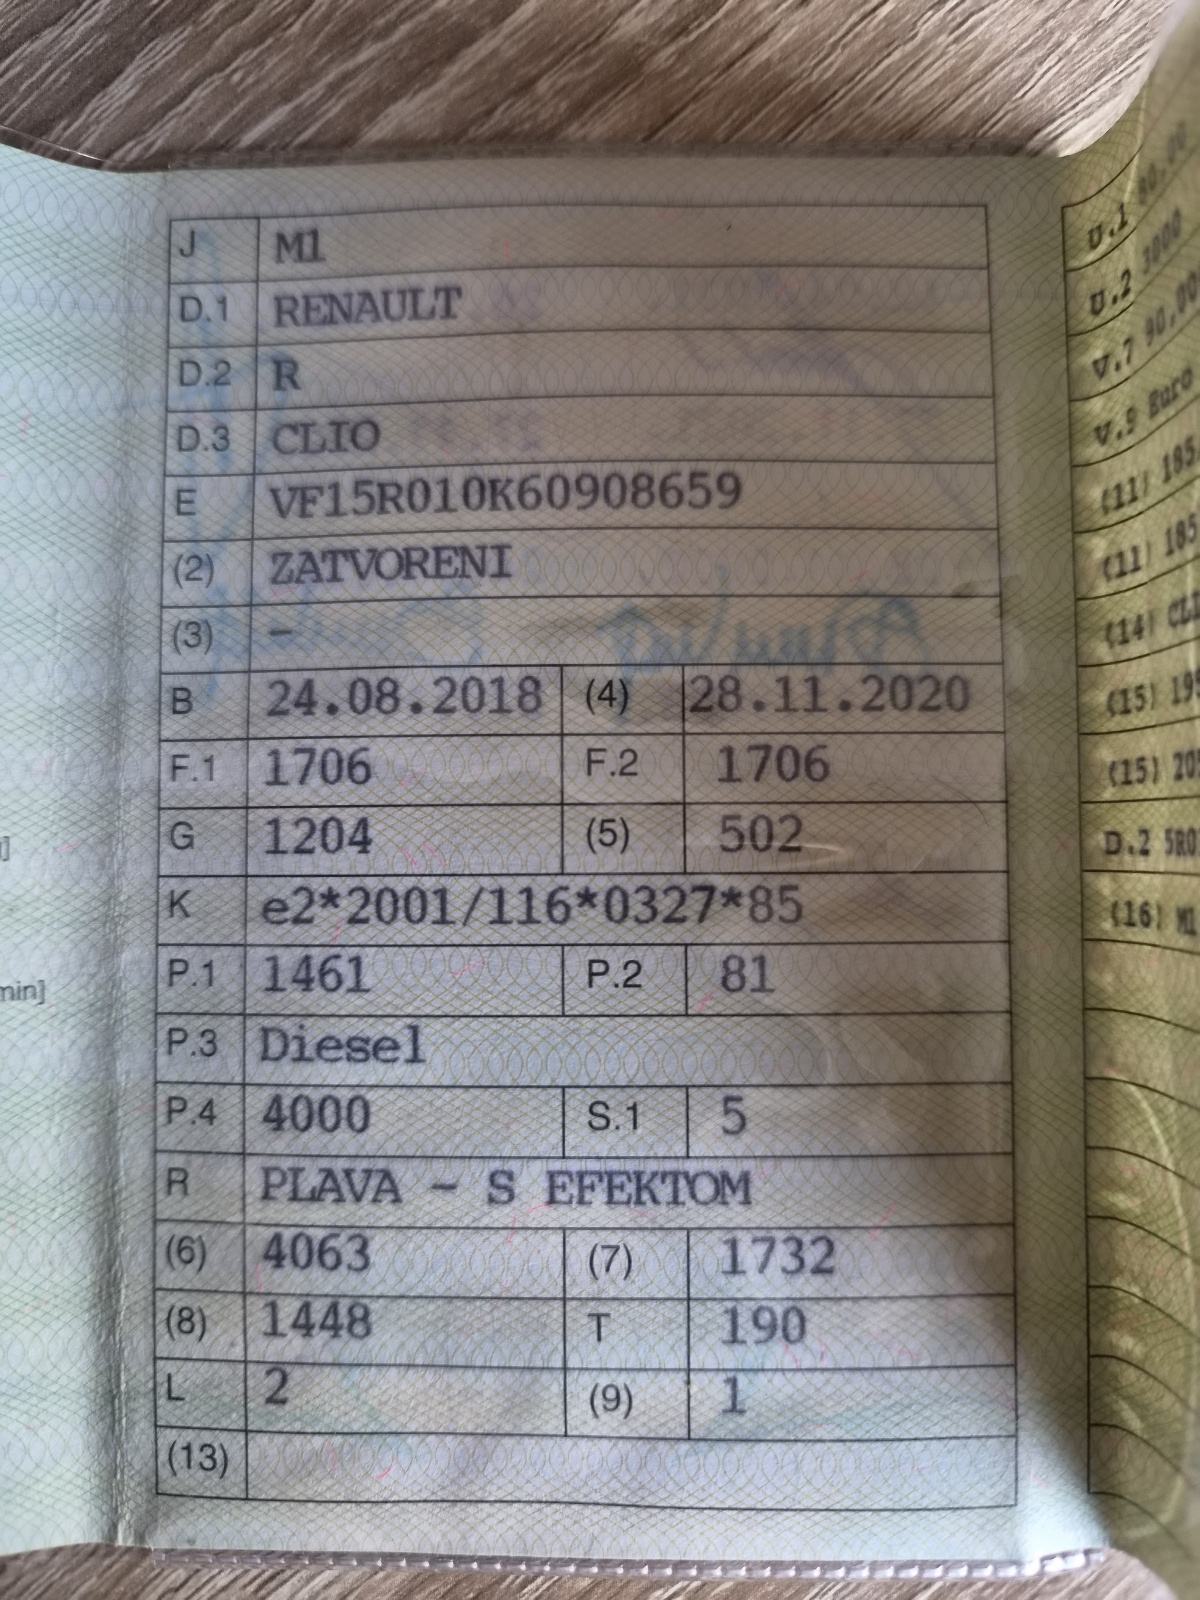 J M1
D.1 RENAULT
D.2 R
D.3 CLIO
E VF15R010K60908659
(2) ZATVORENI
(3) -
B 24.08.2018 (4) 28.11.2020
F.1 1706 F.2 1706
G 1204 (5) 502
K e2*2001/116*0327*85
P.1 1461 P.2 81
P.3 Diesel
P.4 4000 S.1 5
R PLAVA - S EFEKTOM
(6) 4063 (7) 1732
(8) 1448 T 190
L 2 (9) 1
(13)
min]
U.1 80.00
U.2 3000
V.7 90.00
V.9 Euro
(11) 185
(11) 185
(14) CL
(15) 195
(15) 205
D.2 5R0
(16) M1